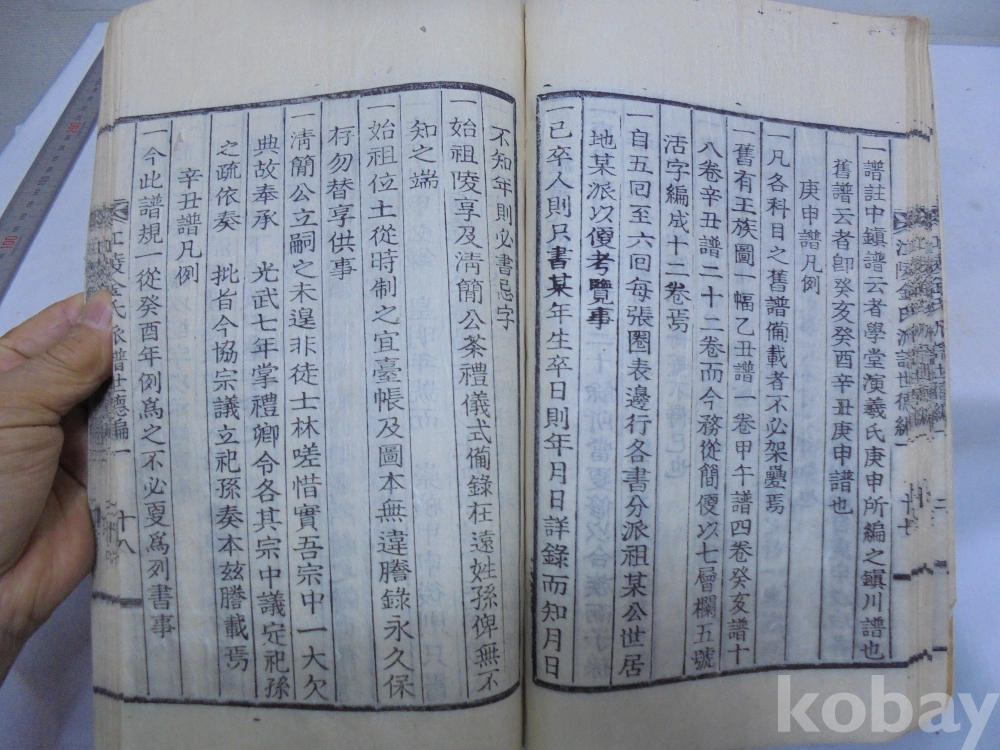 一譜註中鎭譜云者學堂演羲氏庚申所編之鎭川譜也
舊譜云者卽癸亥癸酉辛丑庚申譜也
庚申譜凡例
一凡各科目之舊譜備載者不必架疊焉
一舊有王族圖一幅乙丑譜一卷甲午譜四卷癸亥譜十
八卷辛丑譜二十二卷而今務從簡便以七層欄五號
活字編成十二卷焉
一自五回至六回每張圈表邊行各書分派祖某公世居
地某派以便考覽事
一已卒人則只書某年生卒日則年月日詳錄而知月日
不知年則必書忌字
一始祖陵享及淸簡公茶禮儀式備錄在遠姓孫俾無不
知之端
一始祖位土從時制之宜臺帳及圖本無違謄錄永久保
存勿替享供事
一淸簡公立嗣之未遑非徒士林嗟惜實吾宗中一大欠
典故奉承 光武七年掌禮卿令各其宗中議定祀孫
之疏依奏 批旨今協宗議立祀孫奏本玆謄載焉
辛丑譜凡例
一今此譜規一從癸酉年例爲之不必更爲列書事
江陵金氏派譜世德編一
十七
江陵金氏派譜世德編一
十八
kobay